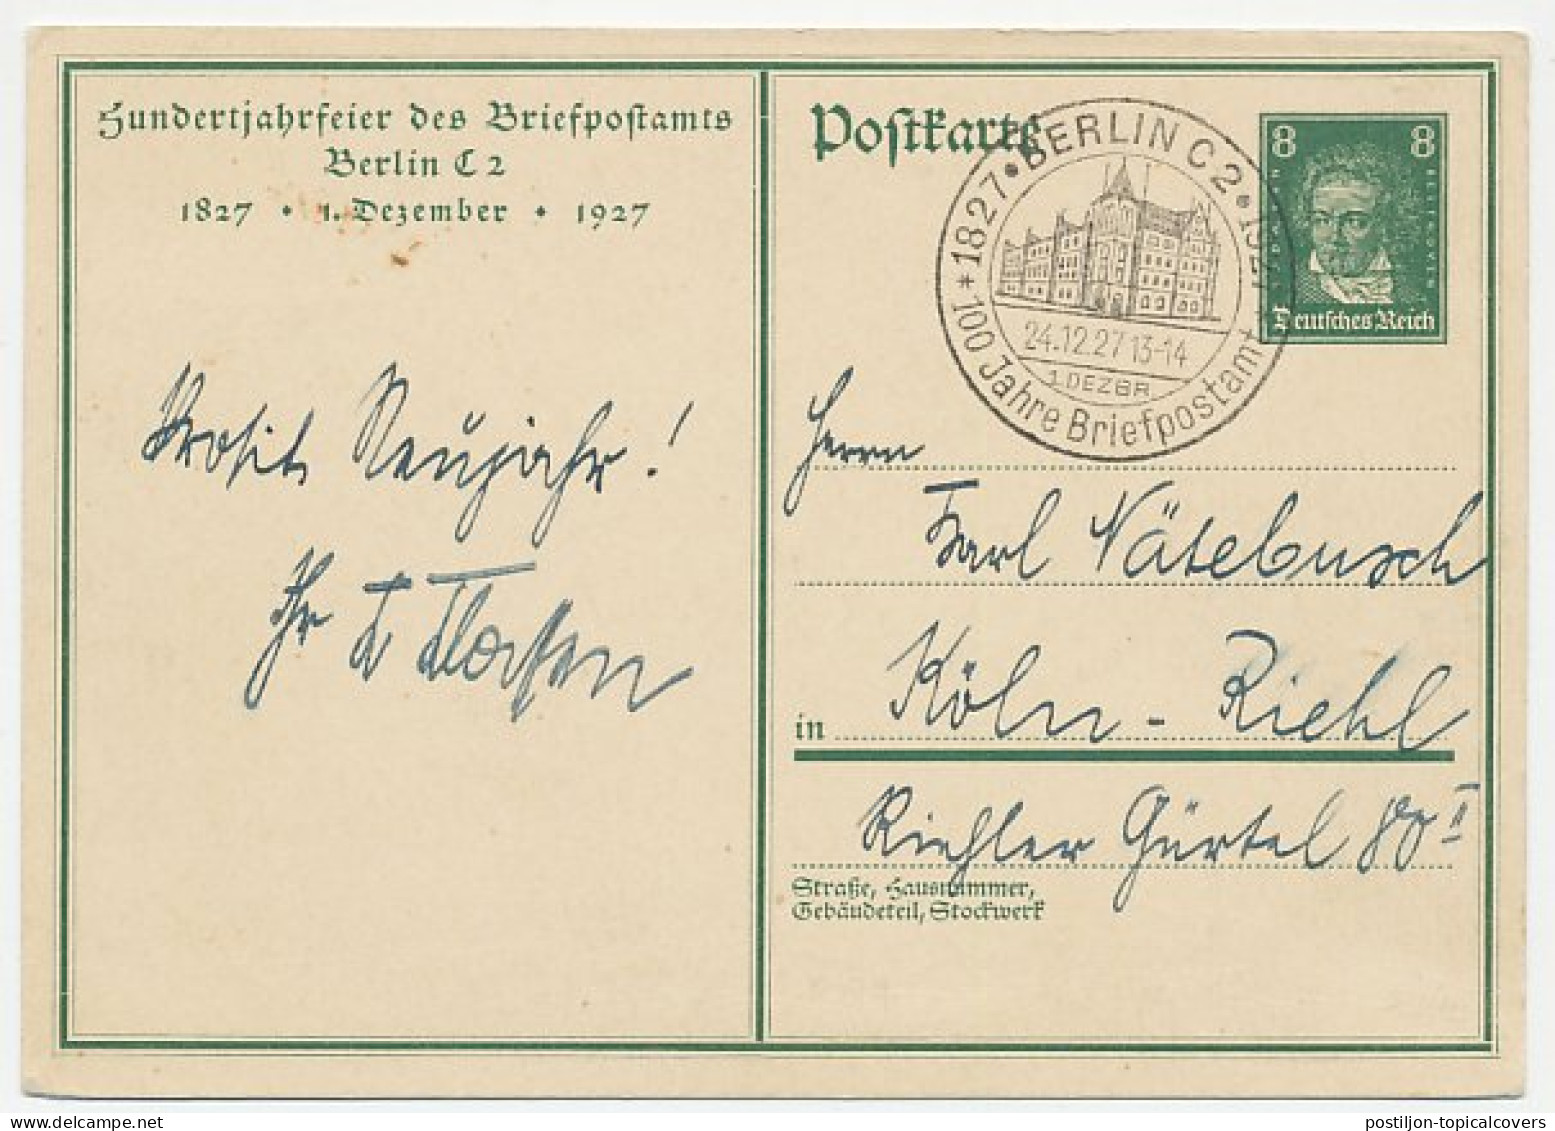 Hundertjahrfeier des Briefpostamts
Berlin C 2
1827 • 1. Dezember • 1927
Prosit Neujahr!
Ihr
Postkarte
1827 • BERLIN C 2 • 1927
* 100 Jahre Briefpostamt
24.12.27 13-14
1. DEZBR
8 8
LUDWIG VAN BEETHOVEN
Deutsches Reich
Herrn
Karl Nätebusch
in Köln-Riehl
Riehler Gürtel II
Straße, Hausnummer,
Gebäudeteil, Stockwerk
postiljon-topicalcovers